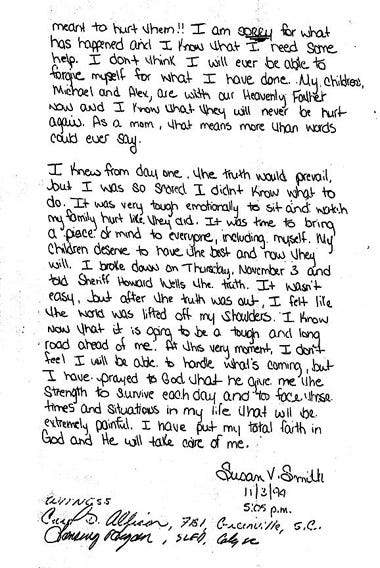 meant to hurt them!! I am sorry for what
has happened and I know that I need some
help. I don't think I will ever be able to
forgive myself for what I have done. My children,
Michael and Alex, are with our Heavenly Father
now and I know that they will never be hurt
again. As a mom, that means more than words
could ever say.
I knew from day one, the truth would prevail,
but I was so scared I didn't know what to
do. It was very tough emotionally to sit and watch
my family hurt like they did. It was time to bring
a piece of mind to everyone, including myself. My
children deserve to have the best and now they
will. I broke down on Thursday, November 3 and
told Sheriff Howard Wells the truth. It wasn't
easy, but after the truth was out, I felt like
the world was lifted off my shoulders. I know
now that it is going to be a tough and long
road ahead of me. At this very moment, I don't
feel I will be able to handle what's coming, but
I have prayed to God that he give me the
strength to survive each day and to face those
times and situations in my life that will be
extremely painful. I have put my total faith in
God and He will take care of me.
Susan V. Smith
11/3/94
5:05 p.m.
WITNESS
FBI, S.C.
SLED,